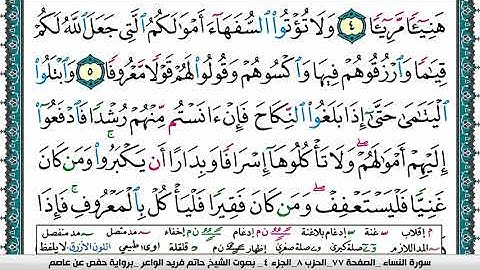 هَنِيٓـًٔا مَّرِيٓـًٔا ٤ وَلَا تُؤْتُوا۟ ٱلسُّفَهَآءَ أَمْوَٰلَكُمُ ٱلَّتِى جَعَلَ ٱللَّهُ لَكُمْ
قِيَـٰمًا وَٱرْزُقُوهُمْ فِيهَا وَٱكْسُوهُمْ وَقُولُوا۟ لَهُمْ قَوْلًا مَّعْرُوفًا ٥ وَٱبْتَلُوا۟
ٱلْيَتَـٰمَىٰ حَتَّىٰٓ إِذَا بَلَغُوا۟ ٱلنِّكَاحَ فَإِنْ ءَانَسْتُم مِّنْهُمْ رُشْدًا فَٱدْفَعُوٓا۟
إِلَيْهِمْ أَمْوَٰلَهُمْ ۖ وَلَا تَأْكُلُوهَآ إِسْرَافًا وَبِدَارًا أَن يَكْبَرُوا۟ ۚ وَمَن كَانَ
غَنِيًّا فَلْيَسْتَعْفِفْ ۖ وَمَن كَانَ فَقِيرًا فَلْيَأْكُلْ بِٱلْمَعْرُوفِ ۚ فَإِذَا
م إقلاب غنة إدغام بلاغنة ن م إدغام ن م إخفاء مد متصل مد منفصل
المد اللازم صلة كبرى وصلة صغرى إظهار ن م قلقلة أوى طبيعي اللون الأزرق لا يلفظ
سورة النساء _ الصفحة ٧٧_ الحزب ٨_ الجزء ٤_ بصوت الشيخ حاتم فريد الواعر _ برواية حفص عن عاصم